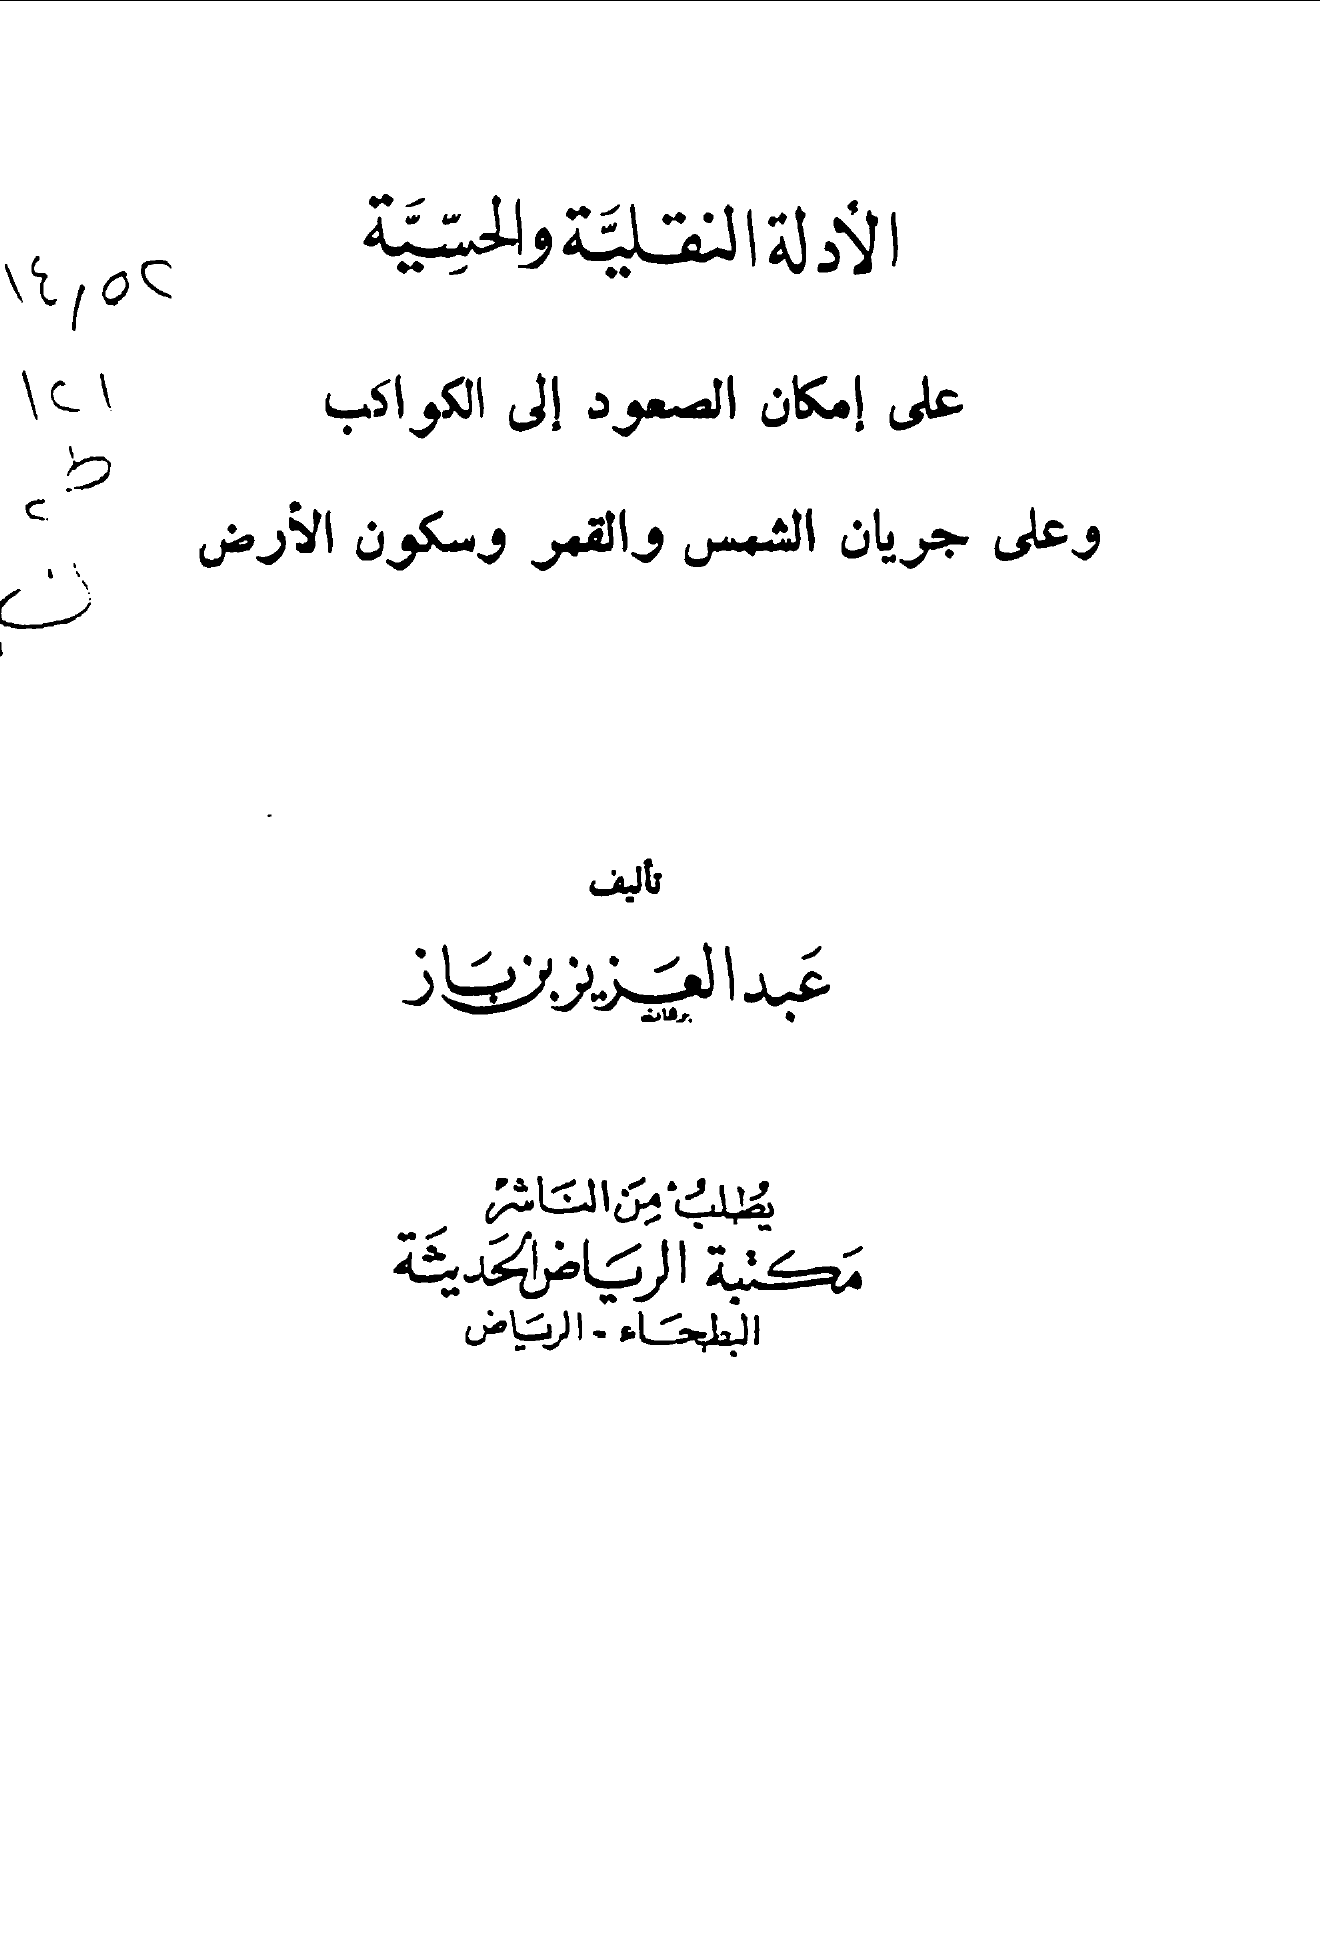 الأدلة النقليَّة والحسِّيَّة
على إمكان الصعود إلى الكواكب
وعلى جريان الشمس والقمر وسكون الأرض
١٤,٥٢
١٢١
ط
٢
ن
تأليف
عَبد العَزيز بن بَاز
يُطلبُ مِنَ النَاشرْ
مَكتبة الريَاض الحَديثَة
البطحَاء - الريَاض